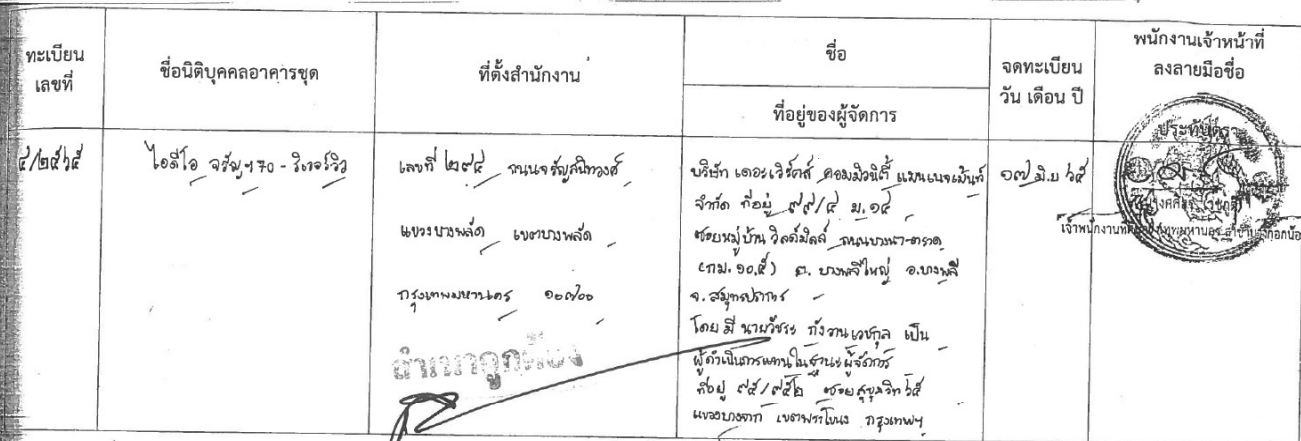 ทะเบียน
เลขที่
ชื่อนิติบุคคลอาคารชุด
ที่ตั้งสำนักงาน
ชื่อ
ที่อยู่ของผู้จัดการ
จดทะเบียน
วัน เดือน ปี
พนักงานเจ้าหน้าที่
ลงลายมือชื่อ
๕/๒๕๖๕
ไอดีโอ จรัญฯ70 - ริเวอร์วิว
เลขที่ ๒๙๔ ถนนจรัญสนิทวงศ์
แขวงบางพลัด เขตบางพลัด
กรุงเทพมหานคร ๑๐๗๐๐
สำเนาถูกต้อง
บริษัท เดอะเวิร์คส์ คอมมิวนิตี้ แมเนจเม้นท์
จำกัด ที่อยู่ ๙๙/๔ ม.๑๔
ซอยหมู่บ้าน วิลล์มิลล์ ถนนบางนา-ตราด
(กม. ๑๐.๕) ต. บางพลีใหญ่ อ.บางพลี
จ. สมุทรปราการ
โดย มี นายวัชระ กังวานเวชกุล เป็น
ผู้ดำเนินการแทนในฐานะผู้จัดการ
ที่อยู่ ๙๕/๙๕๒ ซอยสุขุมวิท ๖๕
แขวงบางจาก เขตพระโขนง กรุงเทพฯ
๑๗ มิ.ย ๖๕
ประทับตรา